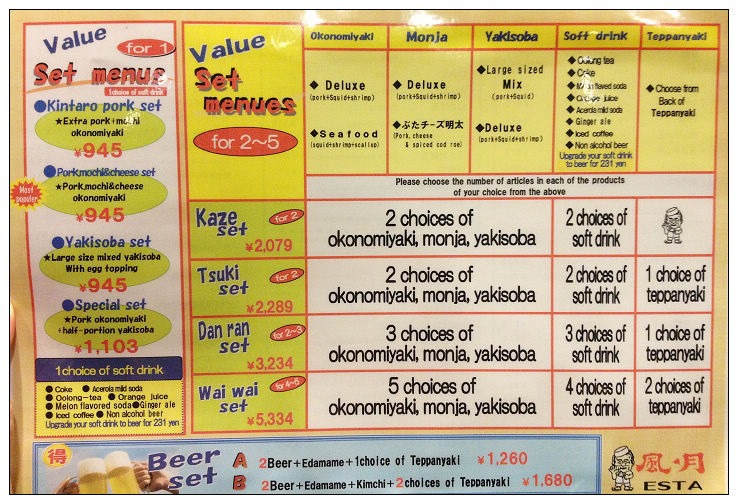 Value
for 1
Set menus
1choice of soft drink
●Kintaro pork set
★Extra pork+mochi
okonomiyaki
¥945
Most
popular
●Pork,mochi&cheese set
★Pork,mochi&cheese
okonomiyaki
¥945
●Yakisoba set
★Large size mixed yakisoba
With egg topping
¥945
●Special set
★Pork okonomiyaki
+half-portion yakisoba
¥1,103
1choice of soft drink
● Coke ● Acerola mild soda
● Oolong-tea ● Orange juice
● Melon flavored soda ●Ginger ale
● Iced coffee ● Non alcohol beer
Upgrade your soft drink to beer for 231 yen
Value
Set
menues
for 2~5
Okonomiyaki Monja Yakisoba Soft drink Teppanyaki
◆ Deluxe
(pork+Squid+shrimp)
◆Seafood
(squid+shrimp+scallop)
◆ Deluxe
(pork+Squid+shrimp)
◆ぶたチーズ明太
(Pork, cheese
& spiced cod roe)
◆Large sized
Mix
(pork+Squid)
◆Deluxe
(pork+Squid+shrimp)
◆ Oolong tea
◆ Coke
◆ Melon flavored soda
◆ Orange juice
◆ Acerola mild soda
◆ Ginger ale
◆ Iced coffee
◆ Non alcohol beer
Upgrade your soft drink
to beer for 231 yen
◆ Choose from
Back of
Teppanyaki
Please choose the number of articles in each of the products
of your choice from the above
Kaze
set
for 2
¥2,079
2 choices of
okonomiyaki, monja, yakisoba
2 choices of
soft drink
Tsuki
set
for 2
¥2,289
2 choices of
okonomiyaki, monja, yakisoba
2 choices of
soft drink
1 choice of
teppanyaki
Dan ran
set
for 2~3
¥3,234
3 choices of
okonomiyaki, monja, yakisoba
3 choices of
soft drink
1 choice of
teppanyaki
Wai wai
set
for 4~5
¥5,334
5 choices of
okonomiyaki, monja, yakisoba
4 choices of
soft drink
2 choices of
teppanyaki
得
Beer
set
A 2Beer+Edamame+1choice of Teppanyaki ¥1,260
B 2Beer+Edamame+Kimchi+2choices of Teppanyaki ¥1,680
風月
ESTA